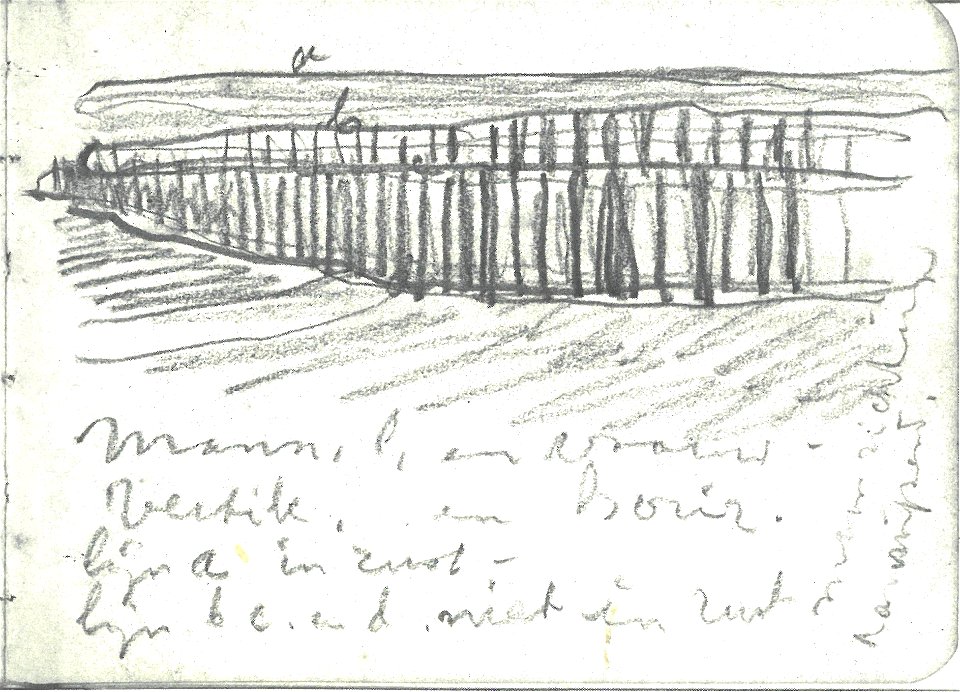 a
b
Mann. l. en vrouw -
Vertik. en horiz.
lijn a in rust -
lijn b c. en d. niet in rust